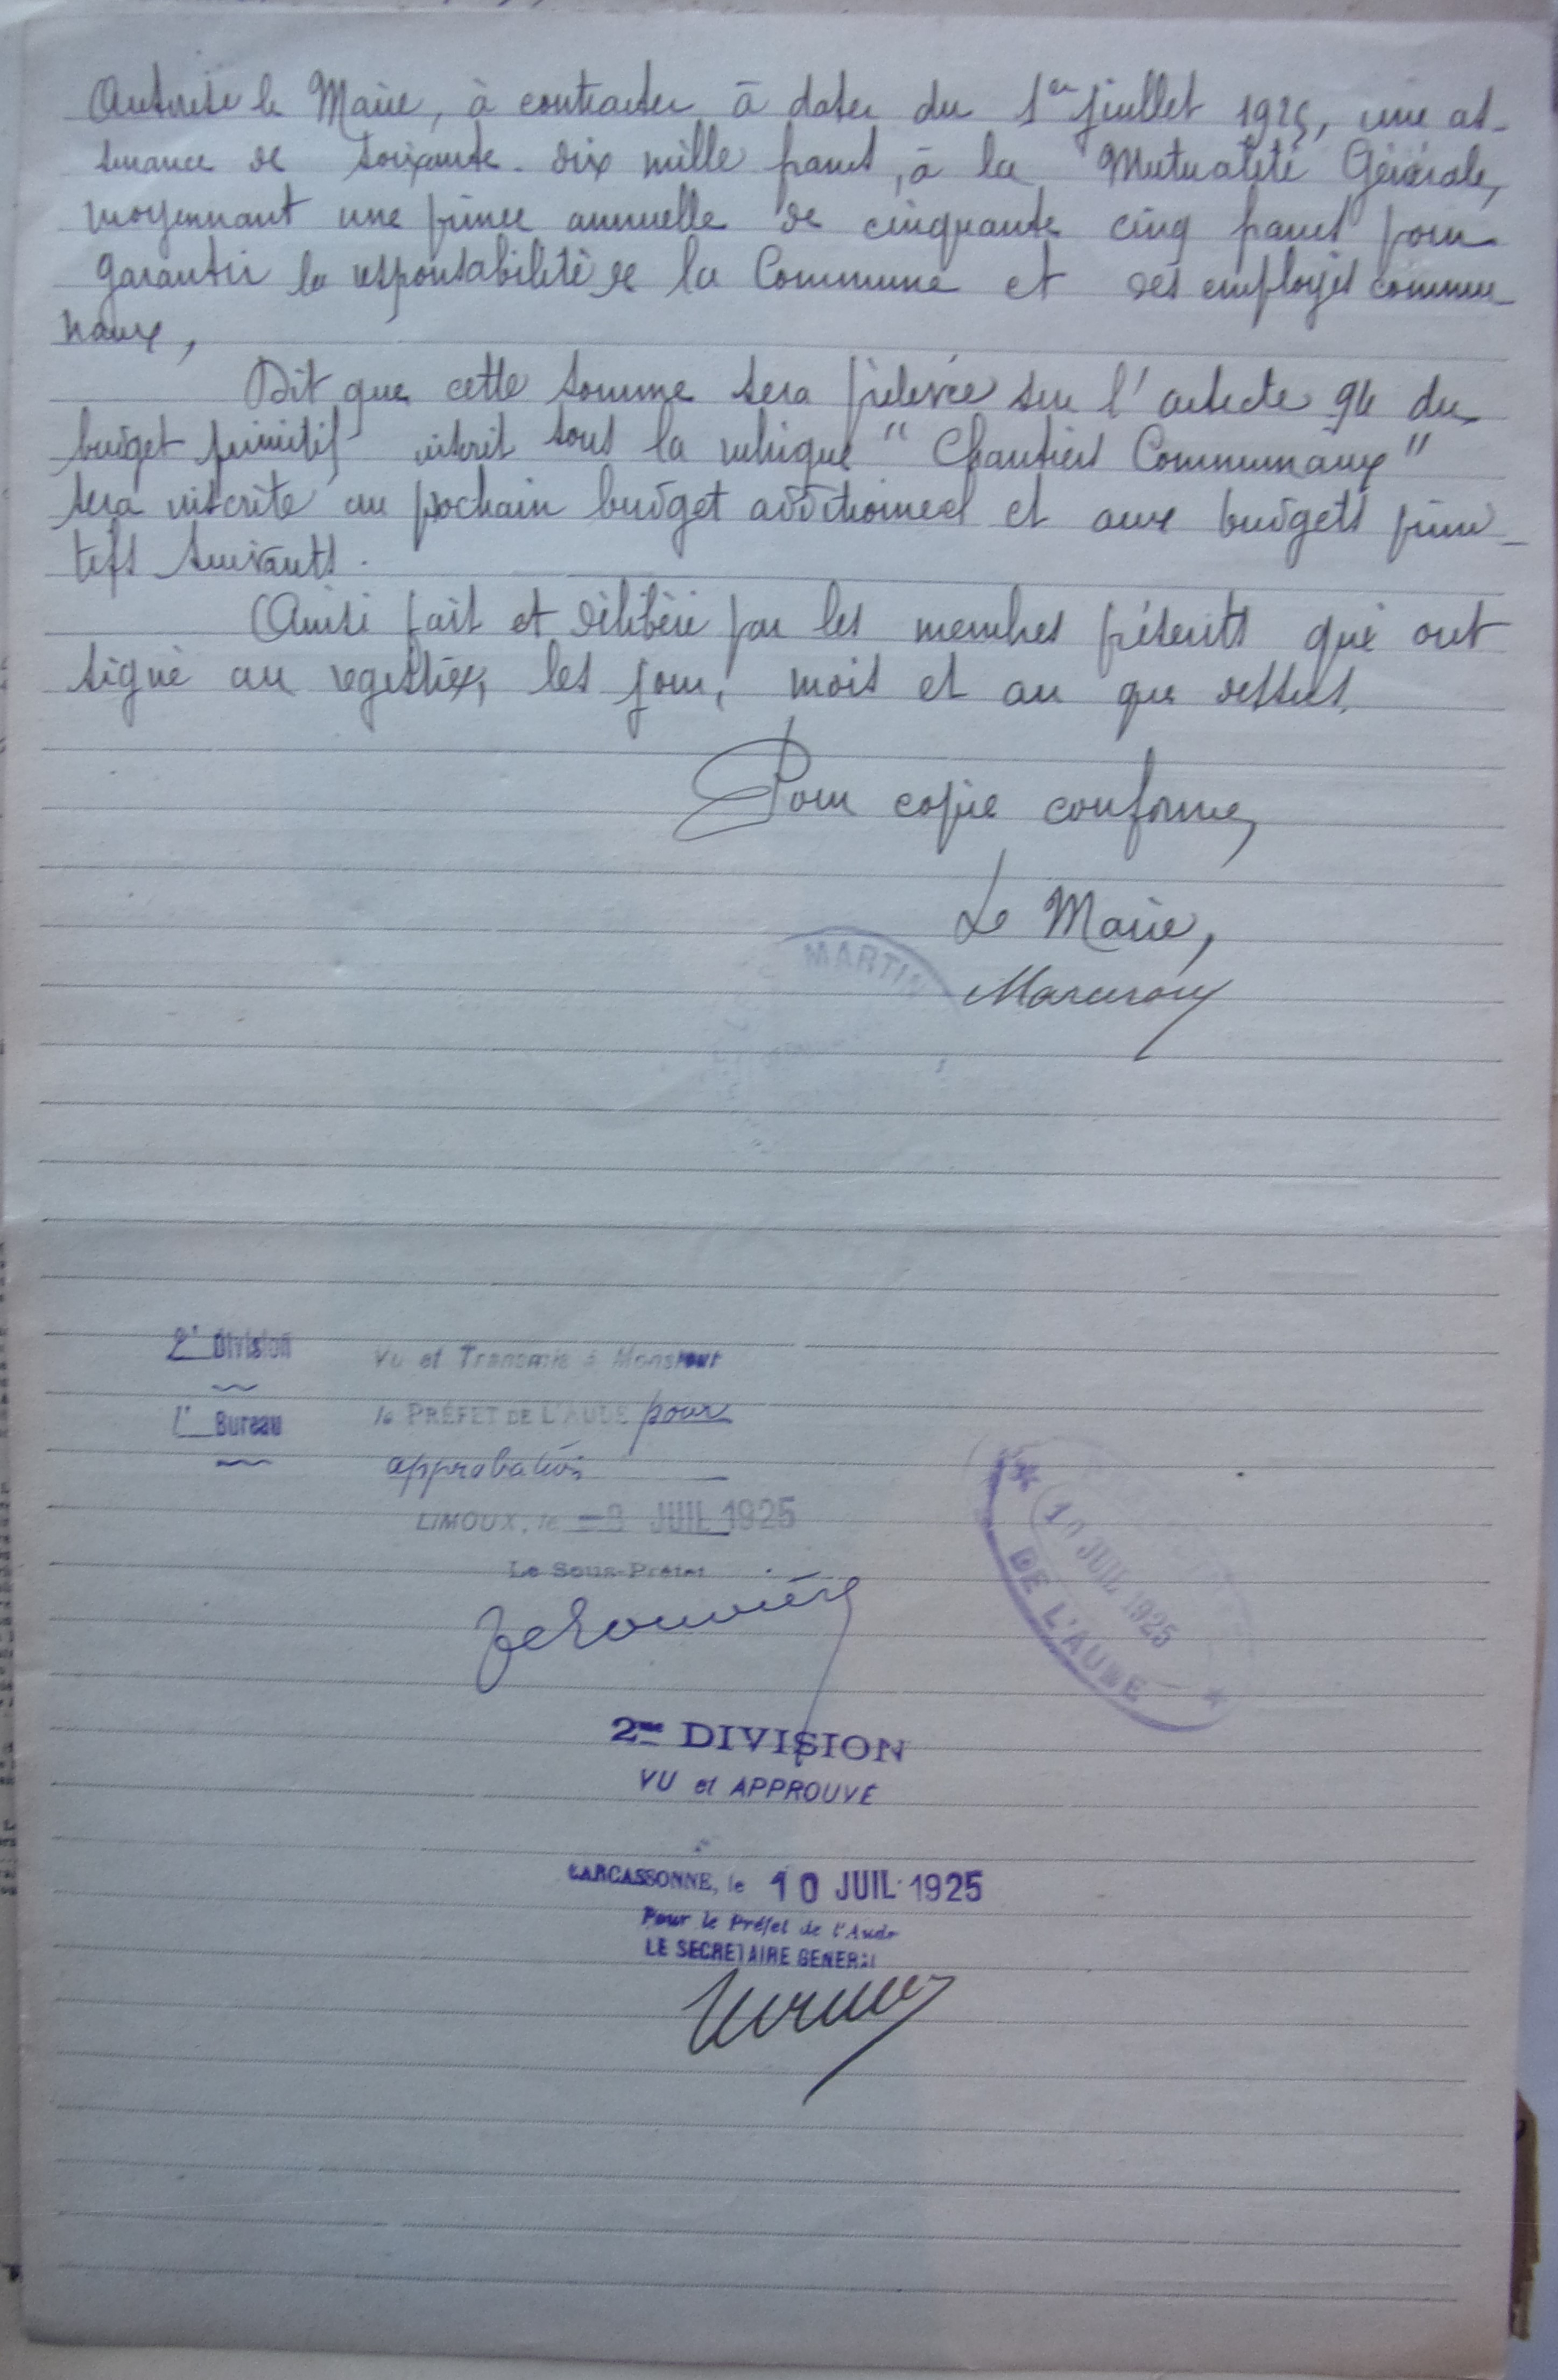 Autorise le Maire, à contracter à dater du 1er juillet 1925, une as-
surance de soixante-dix mille francs, à la Mutualité Générale,
moyennant une prime annuelle de cinquante cinq francs pour
garantir la responsabilité de la Commune et des employés commu-
naux,
Dit que cette somme sera prélevée sur l'article 94 du
budget primitif inscrit sous la rubrique "Chantiers Communaux"
sera inscrite au prochain budget additionnel et aux budgets primi-
tifs suivants.
Ainsi fait et délibéré par les membres présents qui ont
signé au registre, les jour, mois et an que dessus.
Pour copie conforme,
Le Maire,
MARTIN
2e Division
Vu et Transmis à Monsieur
1er Bureau
le PRÉFET DE L'AUDE pour
approbation
LIMOUX, le JUIL 1925
Le Sous-Préfet
* 10 JUIL 1925
DE L'AUDE *
2me DIVISION
VU et APPROUVÉ
CARCASSONNE, le 10 JUIL 1925
Pour le Préfet de l'Aude
LE SECRETAIRE GENERAL